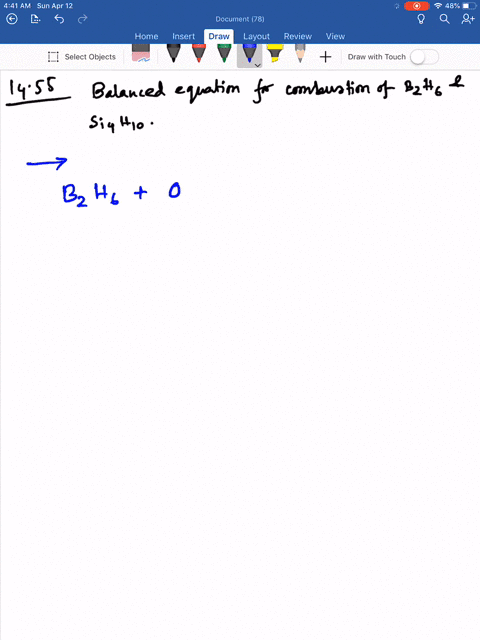 4:41 AM Sun Apr 12
48%
Document (78)
Home Insert Draw Layout Review View
Select Objects
Draw with Touch
14.55 Balanced equation for combustion of B₂H₆ &
Si₄H₁₀.
→
B₂H₆ + O